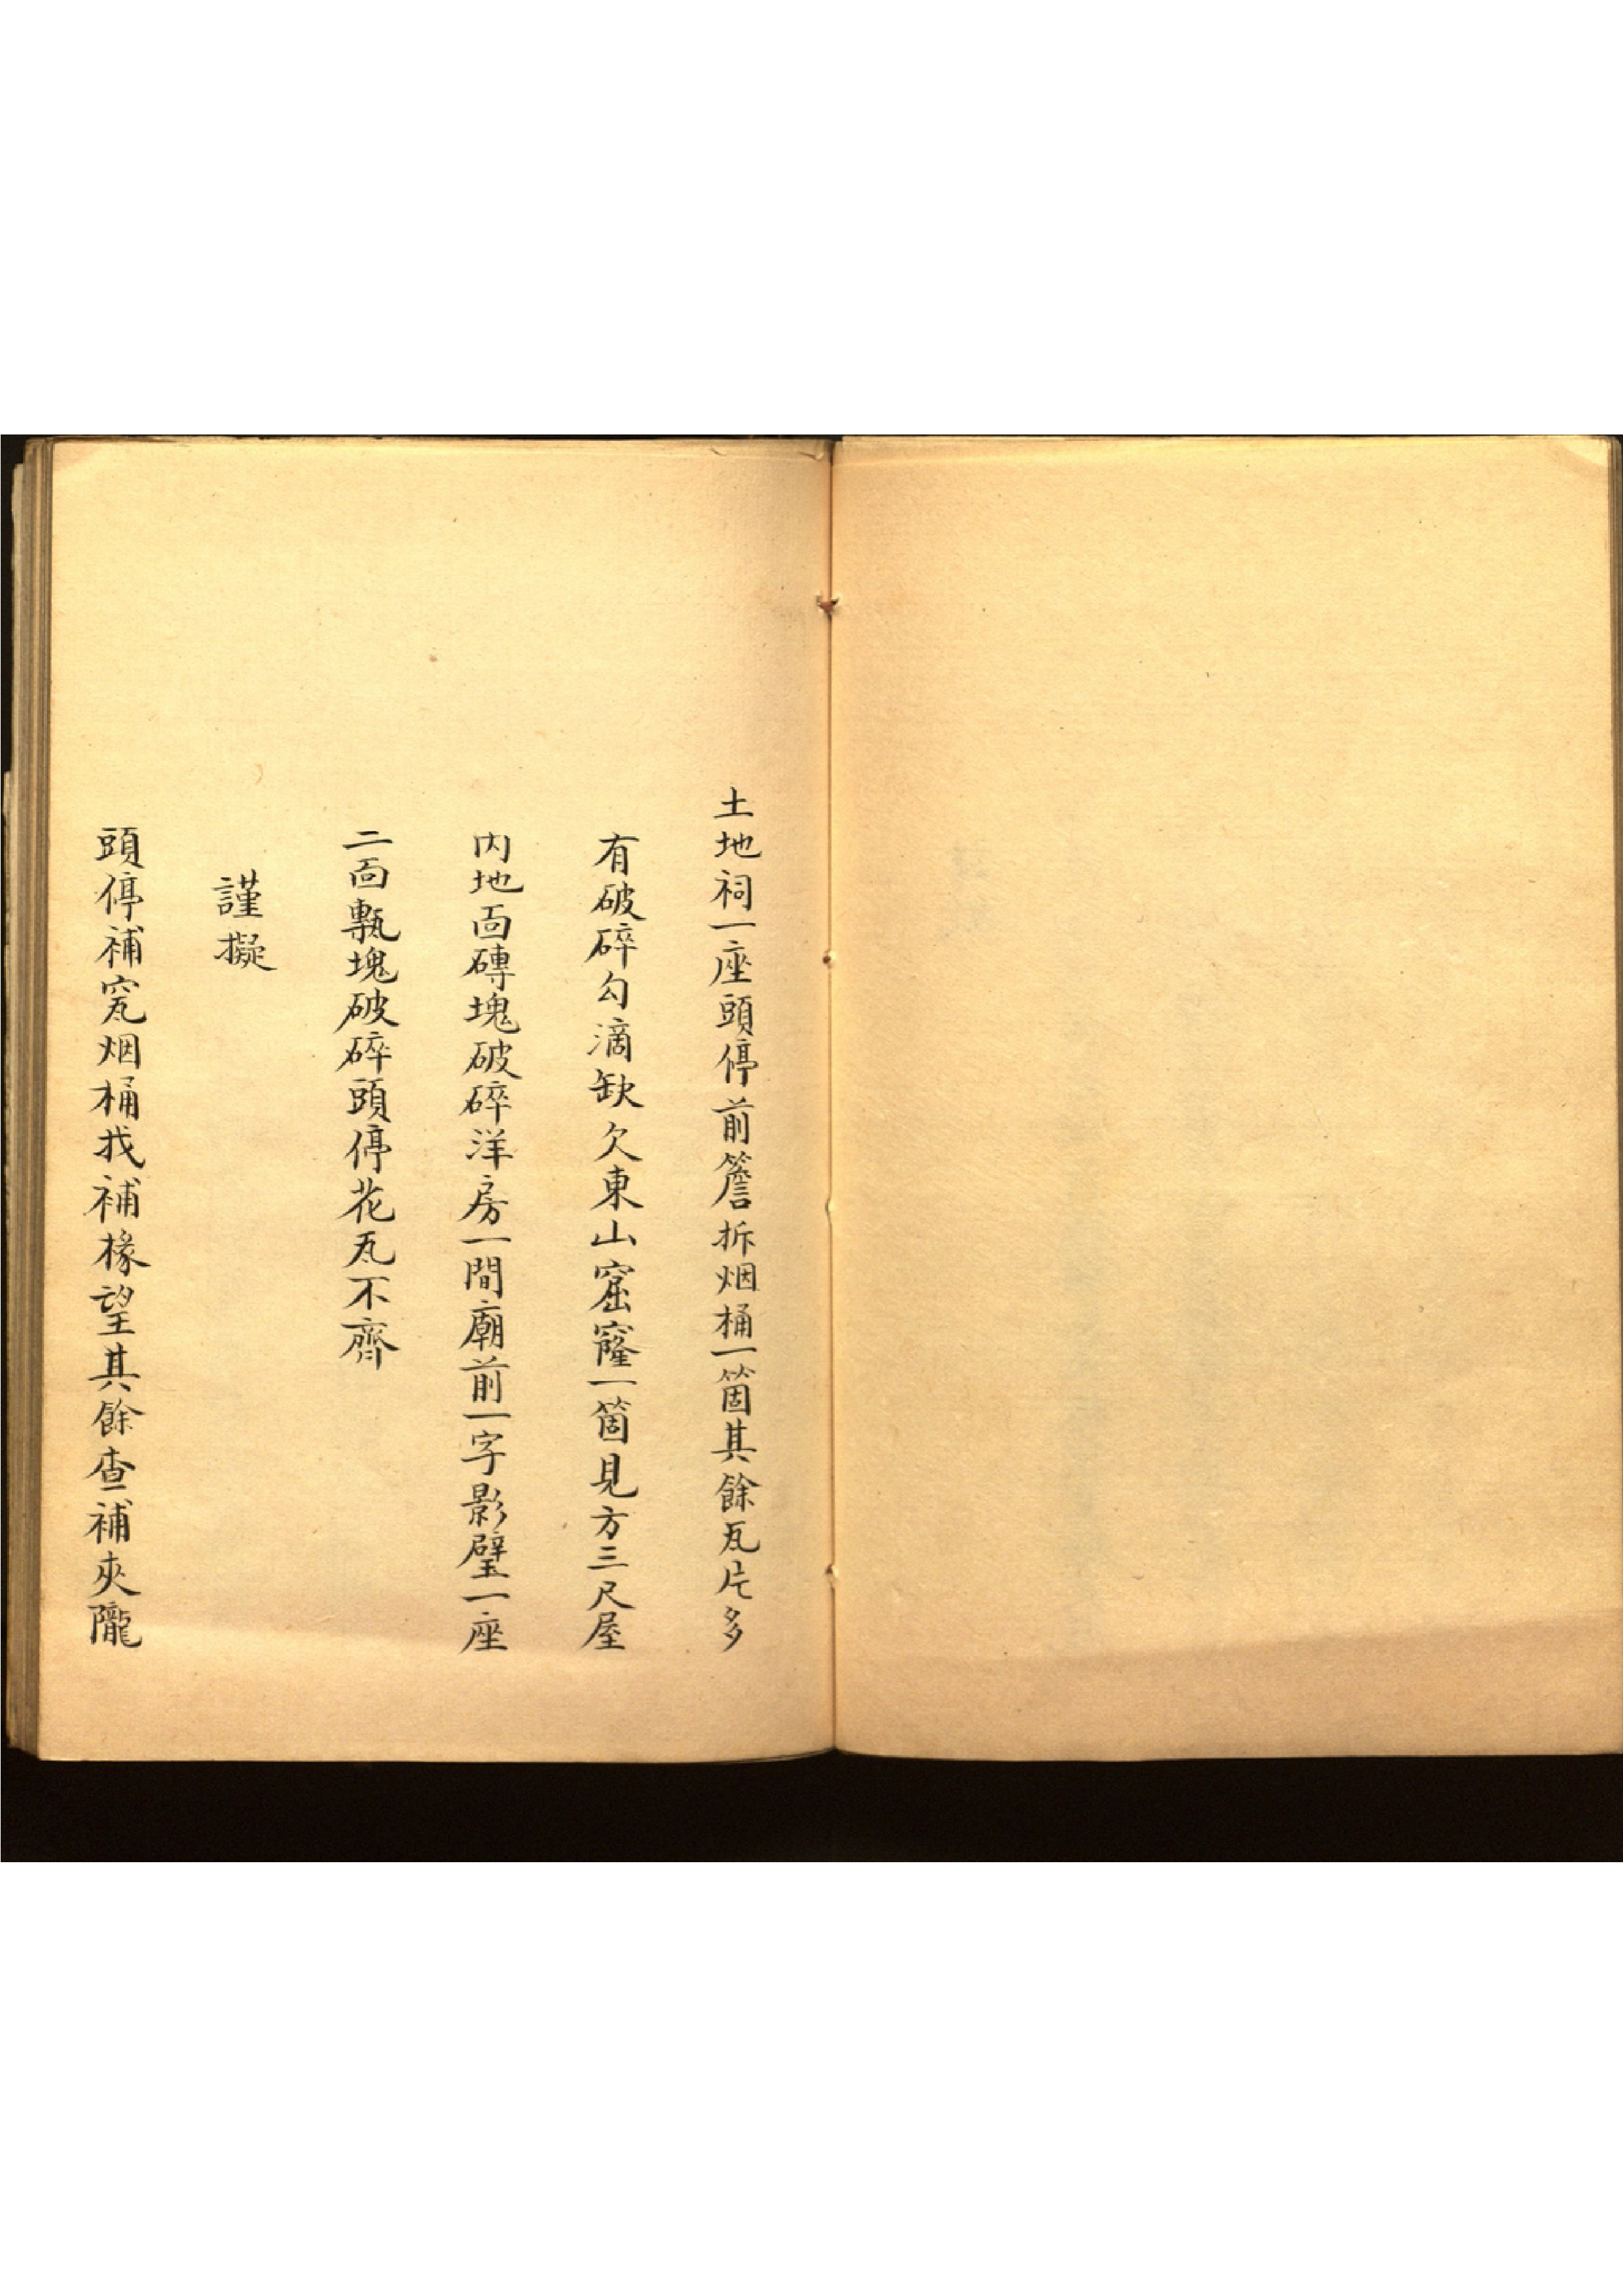 土地祠一座頭停前簷拆烟桶一箇其餘瓦片多
有破碎勾滴缺欠東山窟窿一箇見方三尺屋
内地面磚塊破碎洋房一間廟前一字影壁一座
二面甎塊破碎頭停花瓦不齊
謹擬
頭停補窊烟桶找補椽望其餘查補夾隴